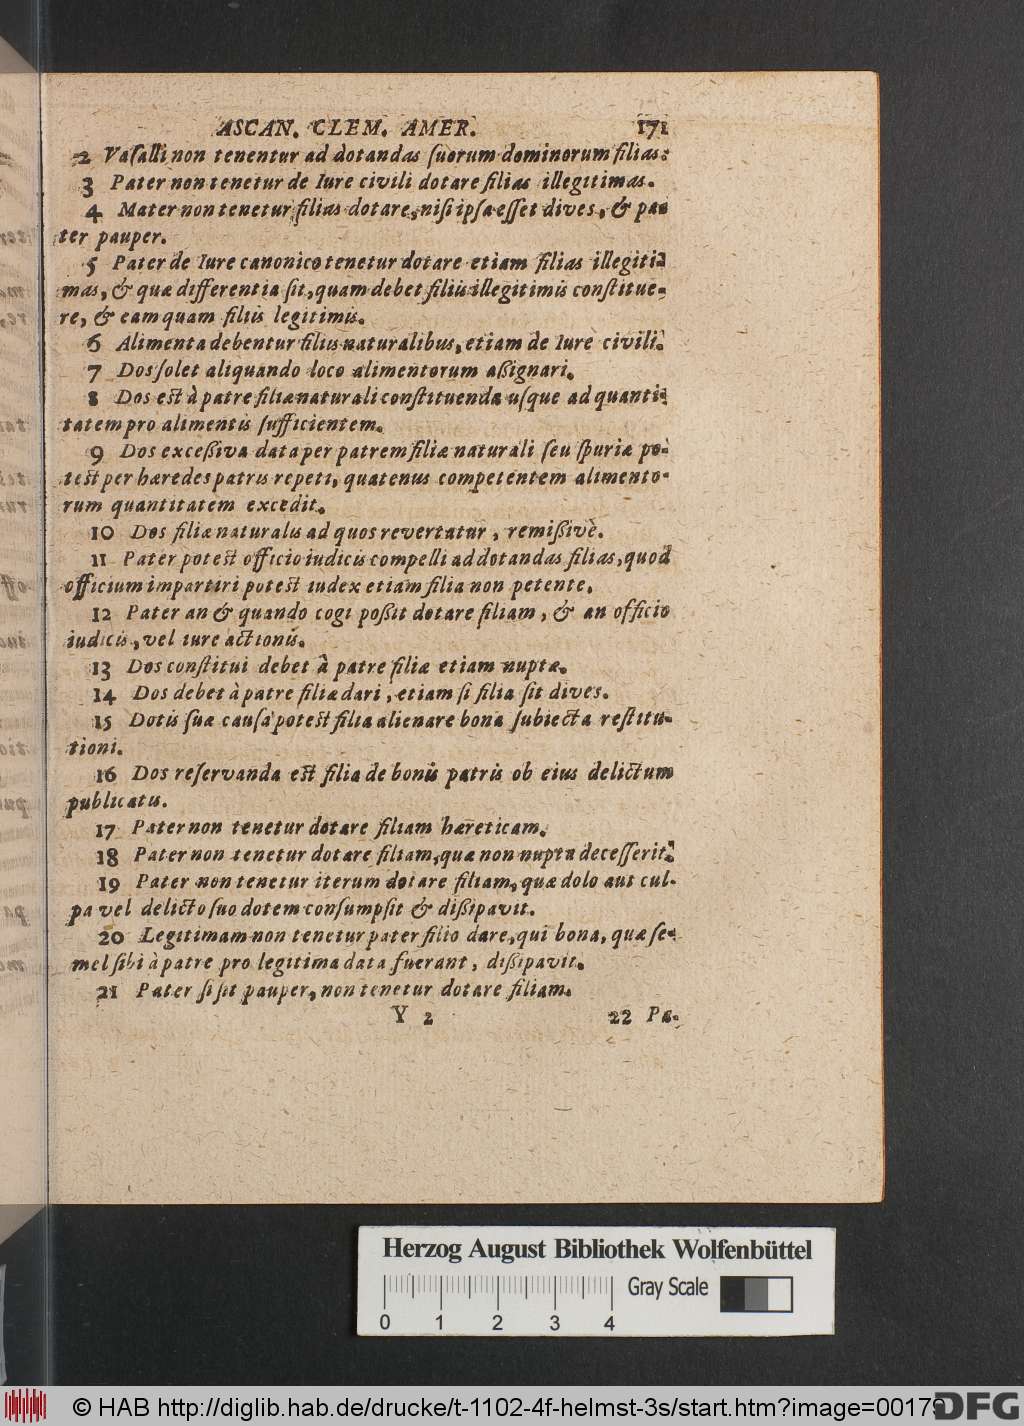 ASCAN. CLEM. AMER. 171
2 Vaſalli non tenentur ad dotandas ſuorum dominorum filias:
3 Pater non tenetur de Iure civili dotare filias illegitimas.
4 Mater non tenetur filias dotare, niſi ipſa eſſet dives, & pa-
ter pauper.
5 Pater de Iure canonico tenetur dotare etiam filias illegiti-
mas, & quæ differentia ſit, quam debet filiis illegitimis conſtitue-
re, & eam quam filiis legitimis.
6 Alimenta debentur filiis naturalibus, etiam de Iure civili.
7 Dos ſolet aliquando loco alimentorum aßignari.
8 Dos est à patre filiæ naturali conſtituenda uſque ad quanti-
tatem pro alimentis ſufficientem.
9 Dos exceßiva data per patrem filiæ naturali ſeu ſpuriæ po-
test per hæredes patris repeti, quatenus competentem alimento-
rum quantitatem excedit.
10 Dos filiæ naturalis ad quos revertatur, remißivè.
11 Pater potest officio iudicis compelli ad dotandas filias, quod
officium impartiri potest iudex etiam filia non petente.
12 Pater an & quando cogi poßit dotare filiam, & an officio
iudicis, vel iure actionis.
13 Dos conſtitui debet à patre filiæ etiam nuptæ.
14 Dos debet à patre filiæ dari, etiam ſi filia ſit dives.
15 Dotis ſuæ cauſa potest filia alienare bona ſubiecta reſtitu-
tioni.
16 Dos reſervanda est filia de bonis patris ob eius delictum
publicatis.
17 Pater non tenetur dotare filiam hæreticam.
18 Pater non tenetur dotare filiam, quæ non nupta deceſſerit.
19 Pater non tenetur iterum dotare filiam, quæ dolo aut cul-
pa vel delicto ſuo dotem conſumpſit & dißipavit.
20 Legitimam non tenetur pater filio dare, qui bona, quæ ſe-
mel ſibi à patre pro legitima data fuerant, dißipavit.
21 Pater ſi ſit pauper, non tenetur dotare filiam.
Y 2 22 Pa-
Herzog August Bibliothek Wolfenbüttel
Gray Scale
0 1 2 3 4
© HAB http://diglib.hab.de/drucke/t-1102-4f-helmst-3s/start.htm?image=00179
DFG